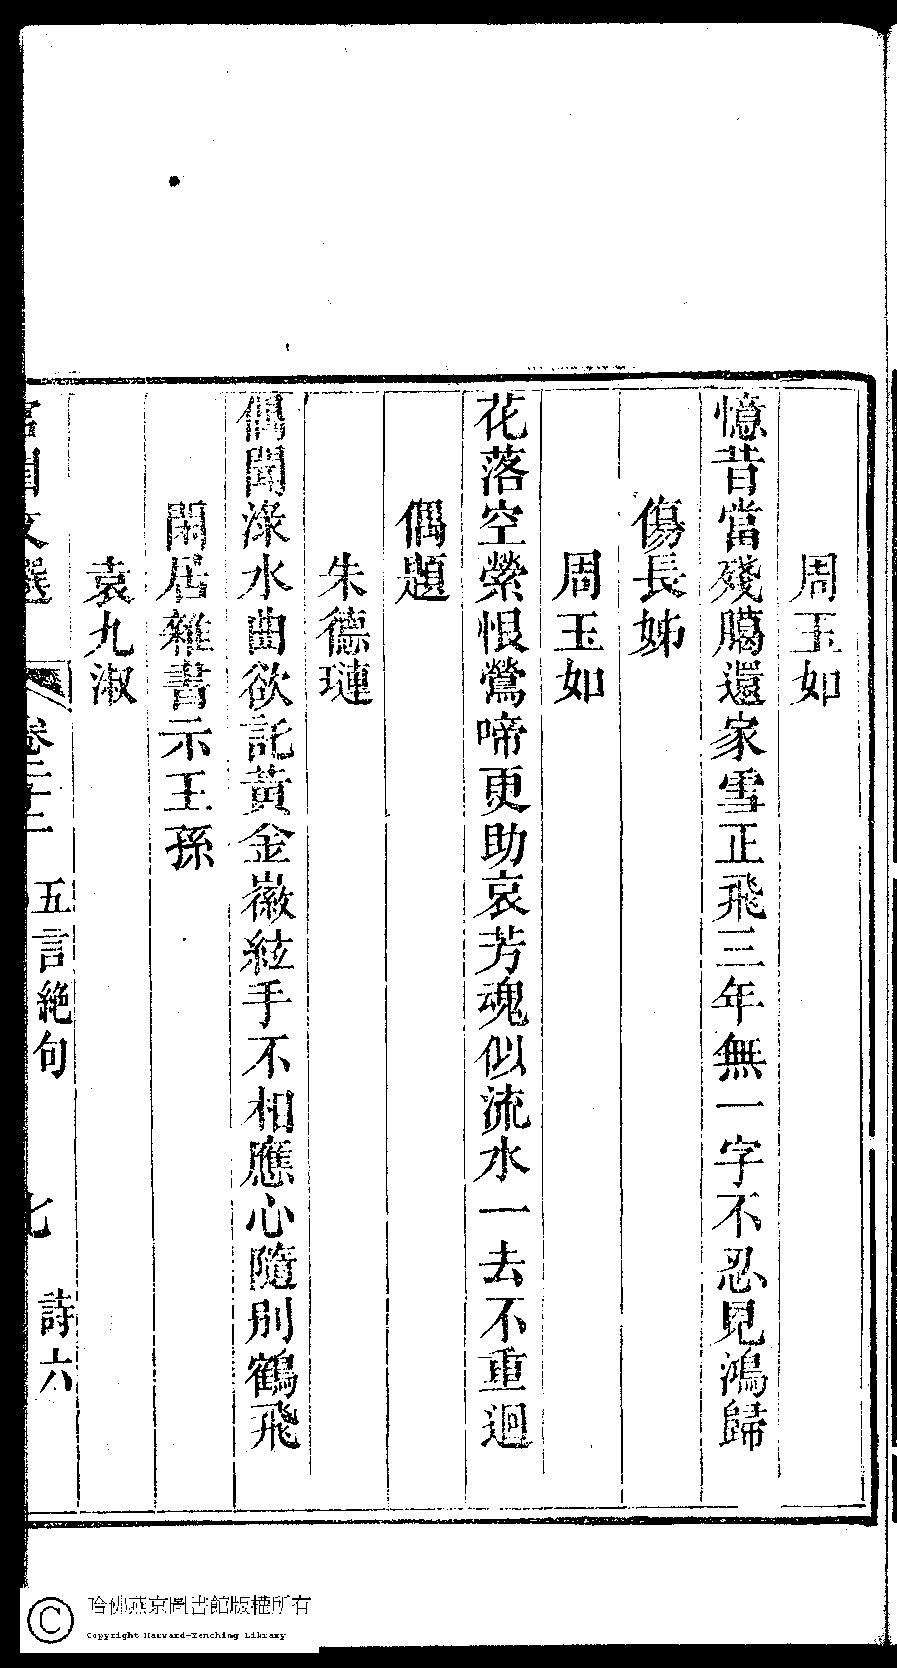 周玉如
憶昔當殘臈還家雪正飛三年無一字不忍見鴻歸
傷長姊
周玉如
花落空縈恨鶯啼更助哀芳魂似流水一去不重迴
偶題
朱德璉
偶聞淥水曲欲託黃金徽絃手不相應心隨别鶴飛
閑居雜書示王孫
袁九淑
宮閨文選 卷二十二 五言絶句 七 詩六
哈佛燕京圖書館版權所有
Copyright Harvard-Yenching Library